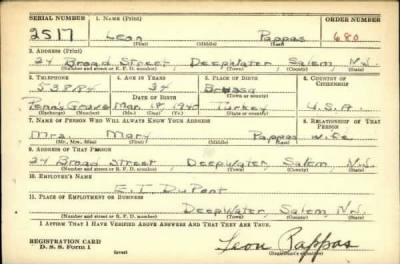 SERIAL NUMBER 1. NAME (Print) ORDER NUMBER
2517 Leon Pappas 680
(First) (Middle) (Last)
2. ADDRESS (Print)
24 Broad Street, Deepwater, Salem, N.J.
(Number and street or R. F. D. number) (Town) (County) (State)
3. TELEPHONE 4. AGE IN YEARS 5. PLACE OF BIRTH 6. COUNTRY OF CITIZENSHIP
538 34 Brussa
DATE OF BIRTH (Town or county)
Penns Grove Mar. 18, Turkey U.S.A.
(Exchange) (Number) (Mo.) (Day) (Yr.) (State or country)
7. NAME OF PERSON WHO WILL ALWAYS KNOW YOUR ADDRESS 8. RELATIONSHIP OF THAT PERSON
Mrs. Mary Pappas wife
(Mr., Mrs., Miss) (First) (Middle) (Last)
9. ADDRESS OF THAT PERSON
24 Broad Street, Deepwater, Salem, N.J.
(Number and street or R. F. D. number) (Town) (County) (State)
10. EMPLOYER'S NAME
E. I. DuPont
11. PLACE OF EMPLOYMENT OR BUSINESS
Deepwater, Salem, N.J.
(Number and street or R. F. D. number) (Town) (County) (State)
I AFFIRM THAT I HAVE VERIFIED ABOVE ANSWERS AND THAT THEY ARE TRUE.
REGISTRATION CARD
D. S. S. Form 1 (over) Leon Pappas
(Registrant's signature)